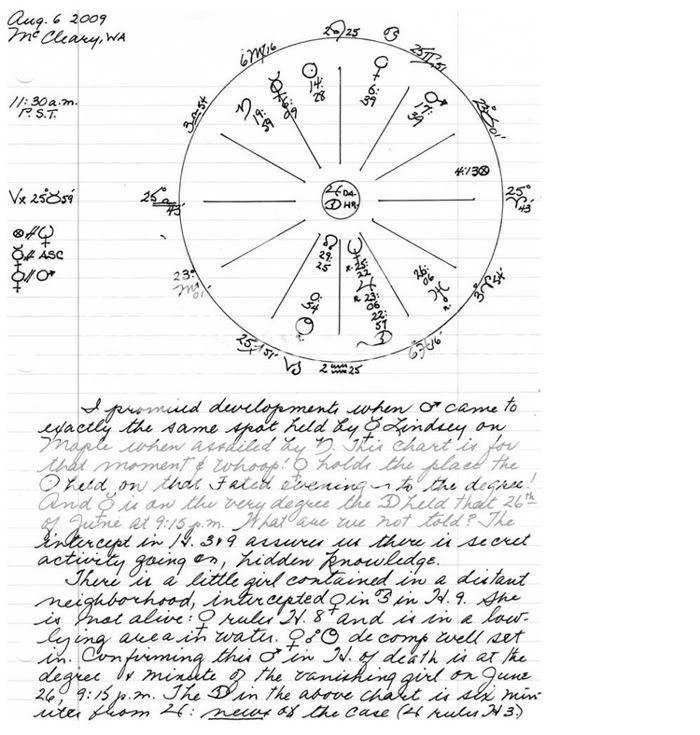 Aug. 6 2009
McCleary, WA
11:30 a.m.
P.S.T.
2♌25
♋
6♍16
3♎54
25♎43'
23°
♏01'
♑
2♒25
25°
♈43'
3♈54'
4:13⊗
♃ DA.
☽ HR.
☉
14:
28
♀
6:
39
♂
17:
39
♄
19:
59
☿
☊
29:
25
0:
54
R. 25:
22
♃
R. 23:
06
22:
57
☽
26:
06
♅
R.
Vx 25♉59'
⊗ // ♀
☿ // ASC
☿ // ♂
I promised developments when ♂ came to
exactly the same spot held by ☿ Lindsey on
Maple when assailed by ♄. This chart is for
that moment & whoop! ♀ holds the place the
☉ held on that Fated evening ~ to the degree!
And ☿ is on the very degree the ☽ held that 26th
of June at 9:15 p.m. What are we not told? The
intercept in H. 3 & 9 assures us there is secret
activity going on, hidden knowledge.
There is a little girl contained in a distant
neighborhood, intercepted ♀ in ♋ in H. 9. She
is not alive: ♀ rules H. 8 and is in a low-
lying area in water. decomp well set
in. Confirming this ♂ in H. of death is at the
degree & minute of the vanishing girl on June
26, 9:15 p.m. The ☽ in the above chart is six min-
utes from ♃: news of the case (♃ rules H 3.)